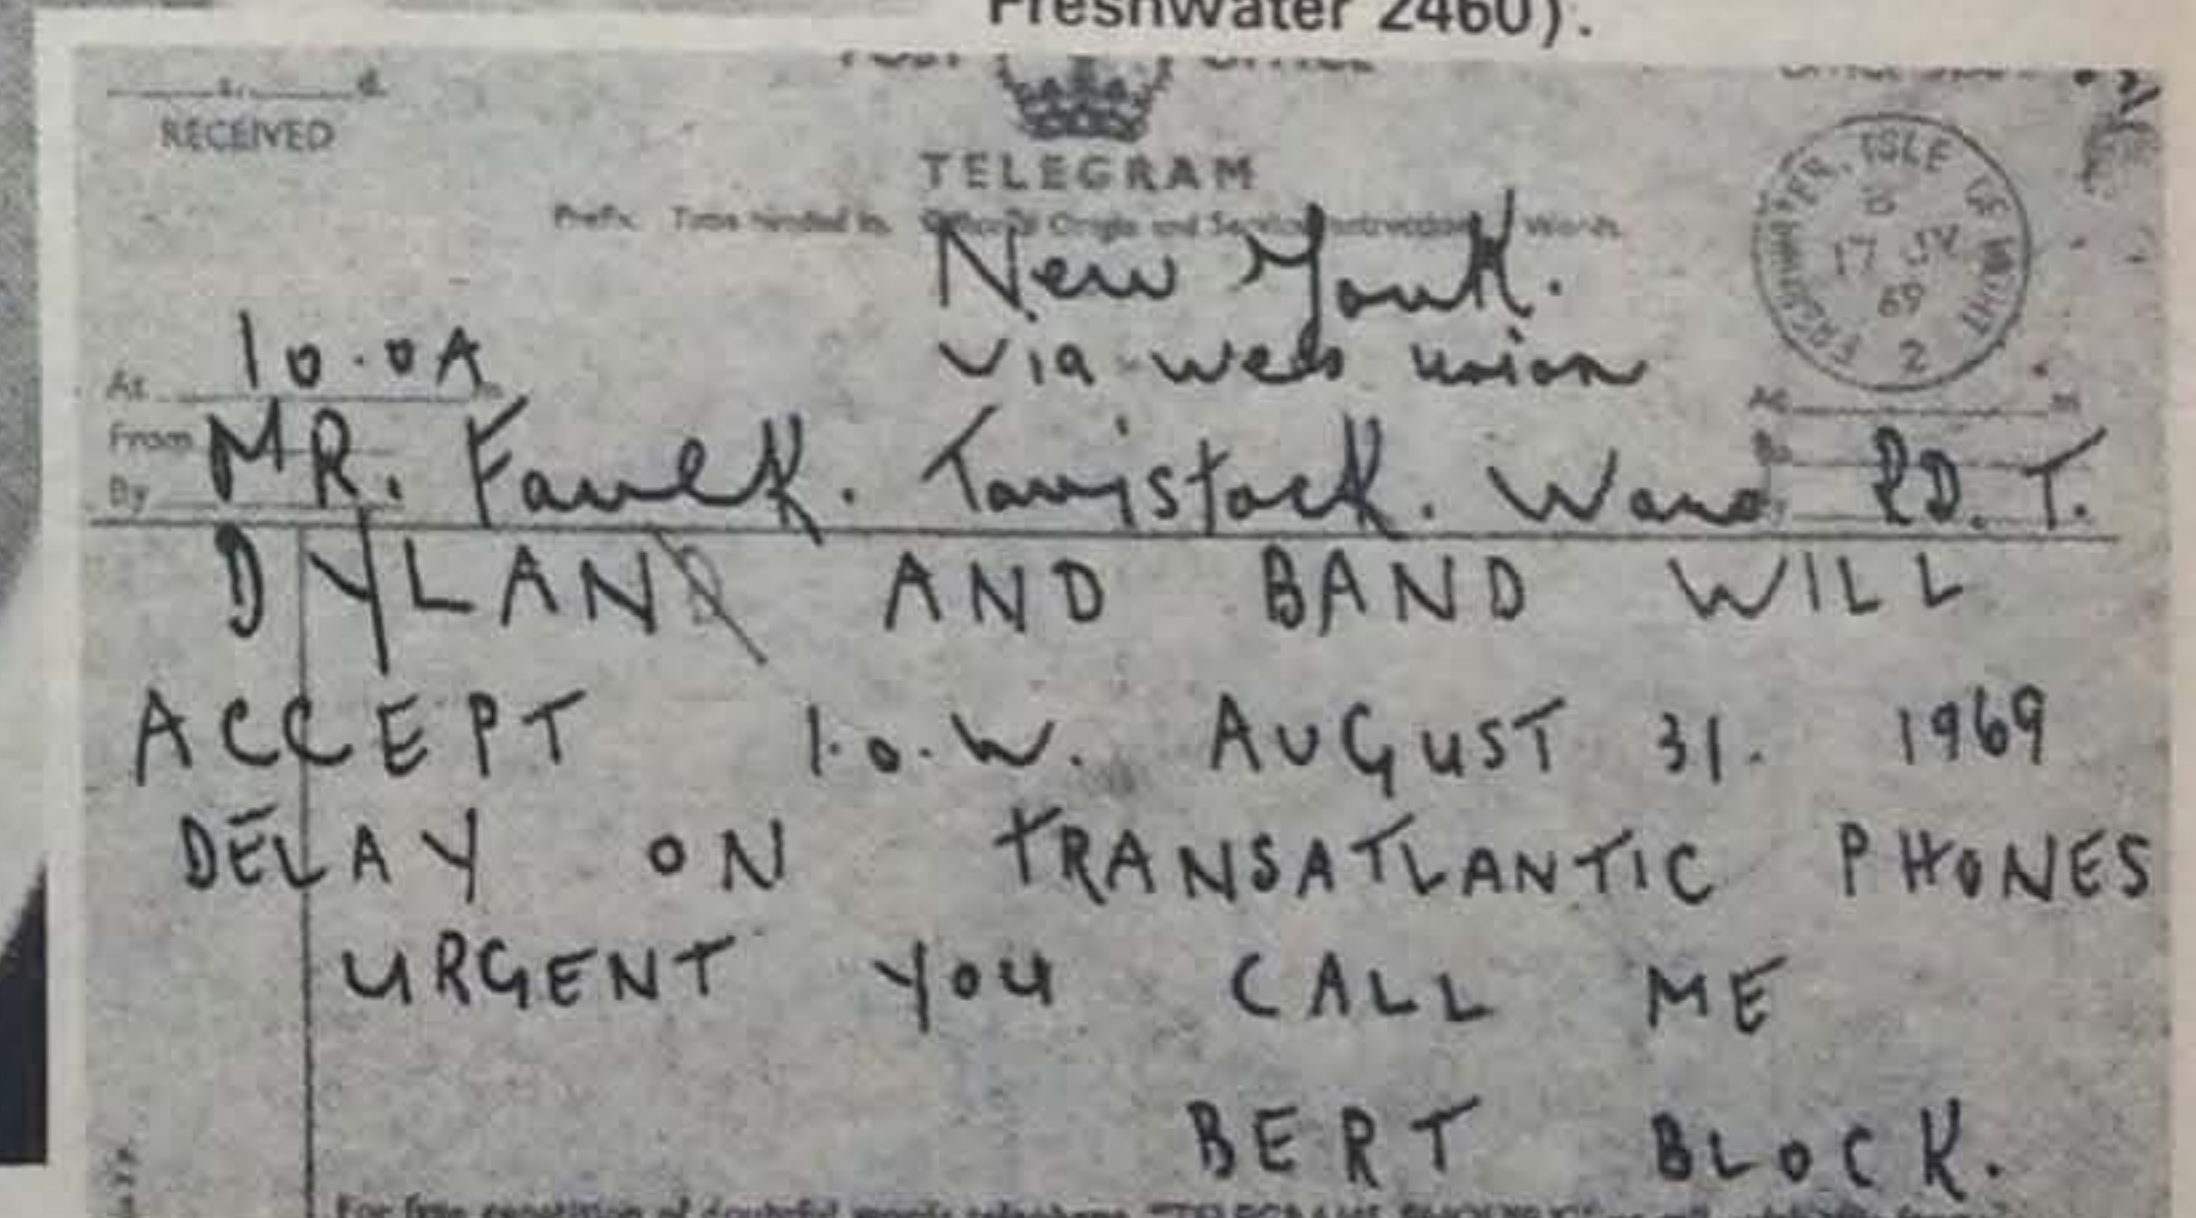 Freshwater 2460).
POST OFFICE
RECEIVED
TELEGRAM
Prefix. Time handed in. Office of Origin and Service Instructions. Words.
FRESHWATER, ISLE OF WIGHT
17 JY
69
2
New York.
At 10.0A
via wes union
From
By
MR. Faulk. Tavistock. Ward RD. T.
DYLAN AND BAND WILL
ACCEPT I.O.W. AUGUST 31. 1969
DELAY ON TRANSATLANTIC PHONES
URGENT YOU CALL ME
BERT BLOCK.
For free repetition of doubtful words telephone